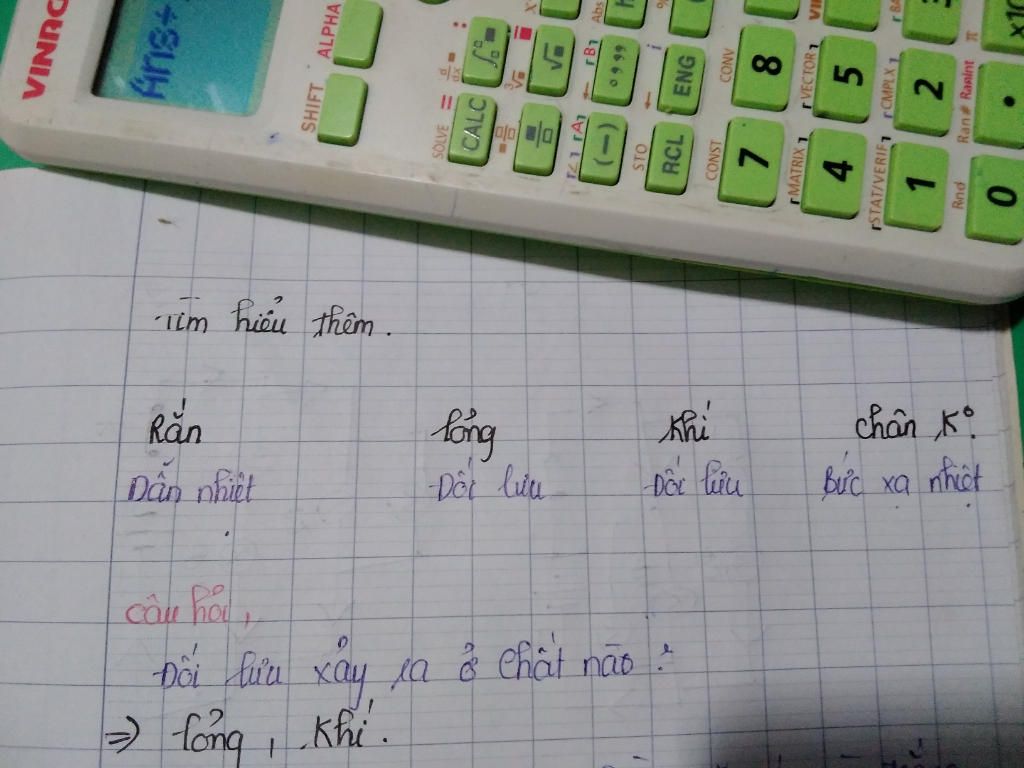 VINRO
Ans÷
SHIFT ALPHA
SOLVE = d/dx :
CALC ∫ √
(−) °’”
STO CONV
RCL ENG
CONST
7 8
MATRIX VECTOR
4 5
STAT/VERIF CMPLX
1 2
Rnd Ran# RanInt π
0 . ×10
Tìm hiểu thêm.
Rắn lỏng Khí chân K°.
Dẫn nhiệt Đối lưu Đối lưu Bức xạ nhiệt
câu hỏi,
Đối lưu xảy ra ở chất nào?
⇒ lỏng, Khí.